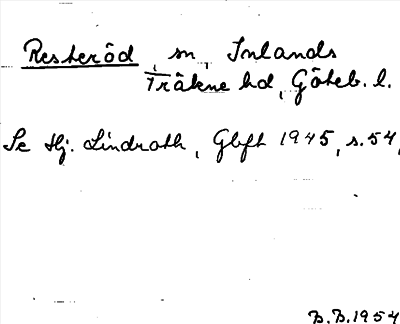 Resteröd, sn, Inlands
Fräkne hd, Göteb. l.
Se Hj. Lindroth, Gbft 1945, s. 54,
B.B. 1954